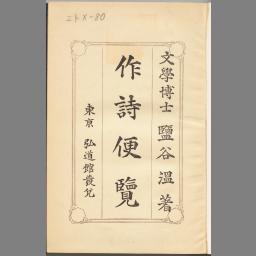 文學博士 鹽谷溫著
作詩便覽
東京 弘道館發兌